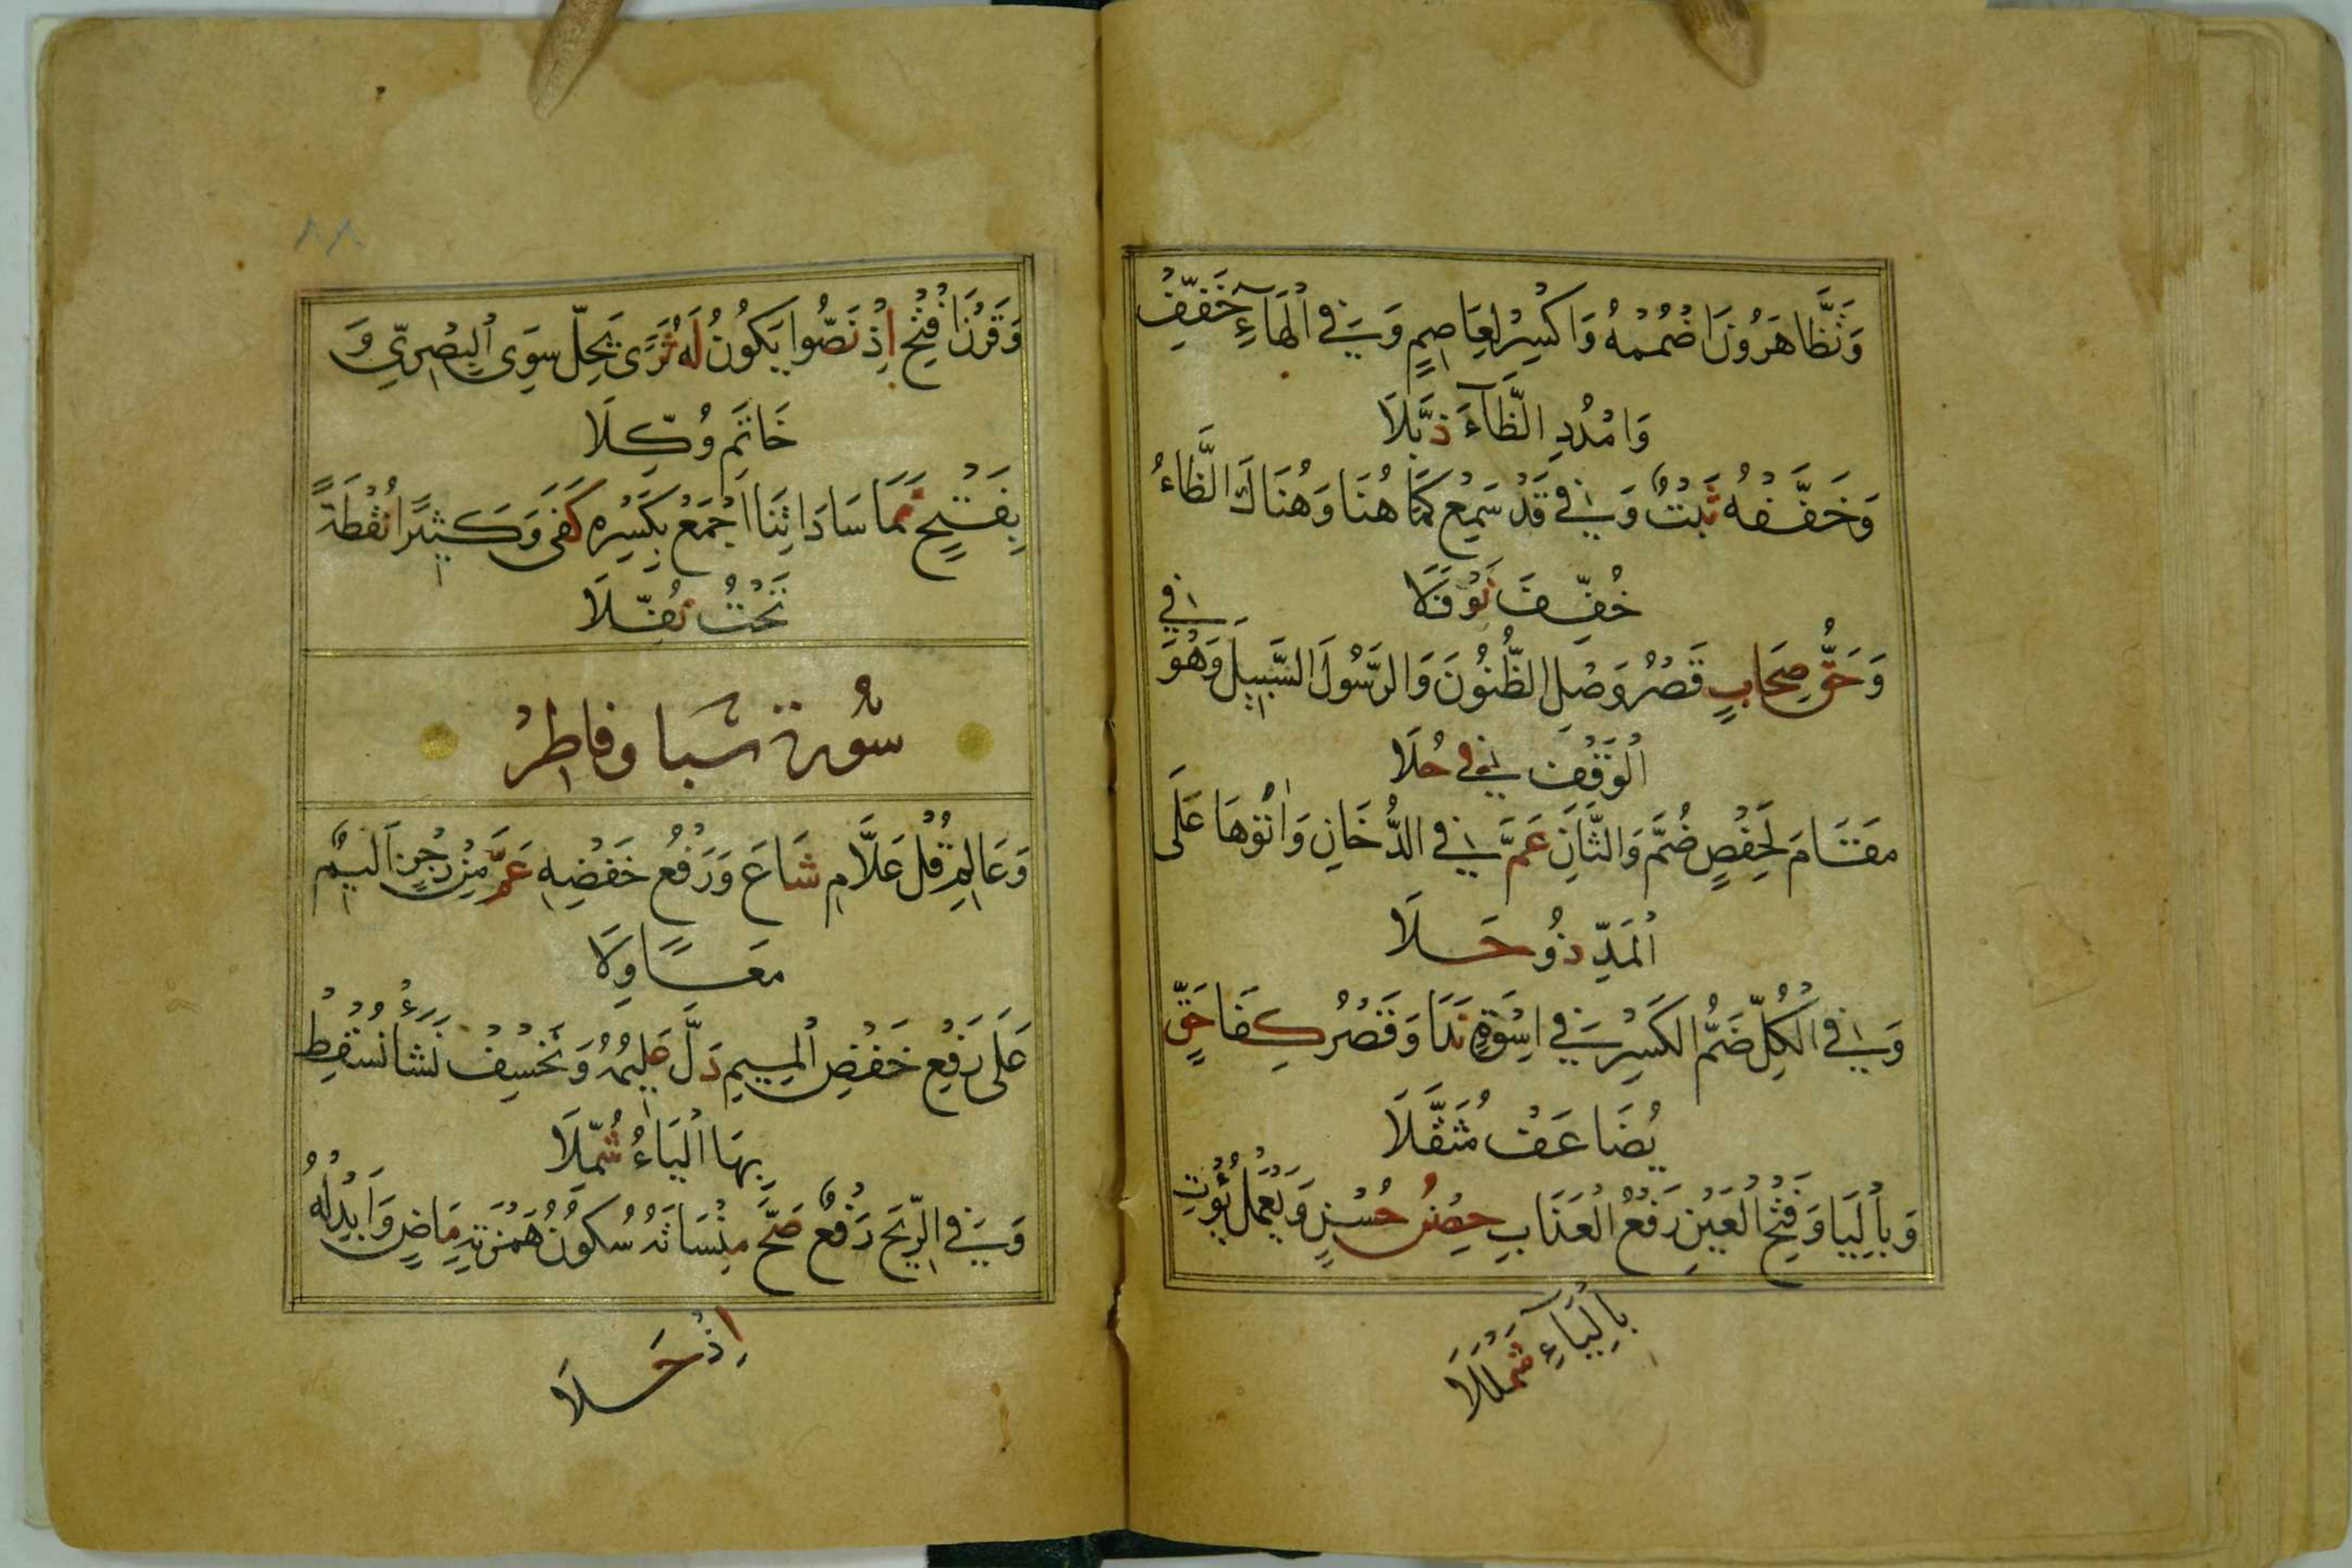 وَتَظَّاهَرُونَ اضْمُمْهُ وَاكْسِرْ لِعَاصِمٍ وَفِي الْهَآءِ خَفِّفْ
وَامْدُدِ الظَّآءَ ذُبَّلَا
وَخَفَّفَهُ ثَبْتٌ وَفِي قَدْ سَمِعْ كَمَا هُنَا وَهُنَاكَ الظَّاءُ
خُفِّفَ نَوْفَلَا
وَحَقُّ صِحَابٍ قَصْرُ وَصْلِ الظُّنُونَ وَالرَّسُولَ السَّبِيلَ وَهُوَ فِي
الْوَقْفِ فِي حُلَا
مَقَامَ لِحَفْصٍ ضُمَّ وَالثَّانِ عَمَّ فِي الدُّخَانِ وَاٰتَوْهَا عَلَى
الْمَدِّ ذُو حَلَا
وَفِي الْكُلِّ ضَمُّ الكَسْرِ فِي اسْوَةٍ نَدَا وَقَصْرُ كِفَا حَقٍّ
يُضَاعَفْ مُثَقَّلَا
وَبِالْيَا وَفَتْحِ الْعَيْنِ رَفْعُ الْعَذَابِ حِصْنُ حُسْنٍ وَيَعْمَلْ يُؤْتِ
بِالْيَآءِ شَمْلَلَا
٨٨
وَقَرْنَ افْتَحِ اذْ نَصُّوا يَكُونُ لَهُ ثَرَى يَحِلُّ سِوَى الْبَصْرِيِّ وَ
خَاتَمِ وُكِّلَا
بِفَتْحٍ نَمَا سَادَاتِنَا اجْمَعْ بِكَسْرِهِ كَفَى وَكَثِيرًا نُقْطَةً
تَحْتُ نُفِّلَا
سُورة سَبا وفاطِرْ
وَعَالِمِ قُلْ عَلَّامِ شَاعَ وَرَفْعُ خَفْضِهِ عَمَّ مِنْ رِجْزٍ اَلِيمٌ
مَعًا وِلَا
عَلَى رَفْعِ خَفْضِ الْمِيمِ دَلَّ عَلِيمُهُ وَنَخْسِفْ نَشَأْ نُسْقِطْ
بِهَا الْيَاءُ شَمْلَلَا
وَفِي الرِّيحَ رَفْعٌ صَحَّ مِنْسَاتَهُ سُكُونُ هَمْزَتِهِ مَاضٍ وَاَبْدِلْهُ
اِذْ حَلَا